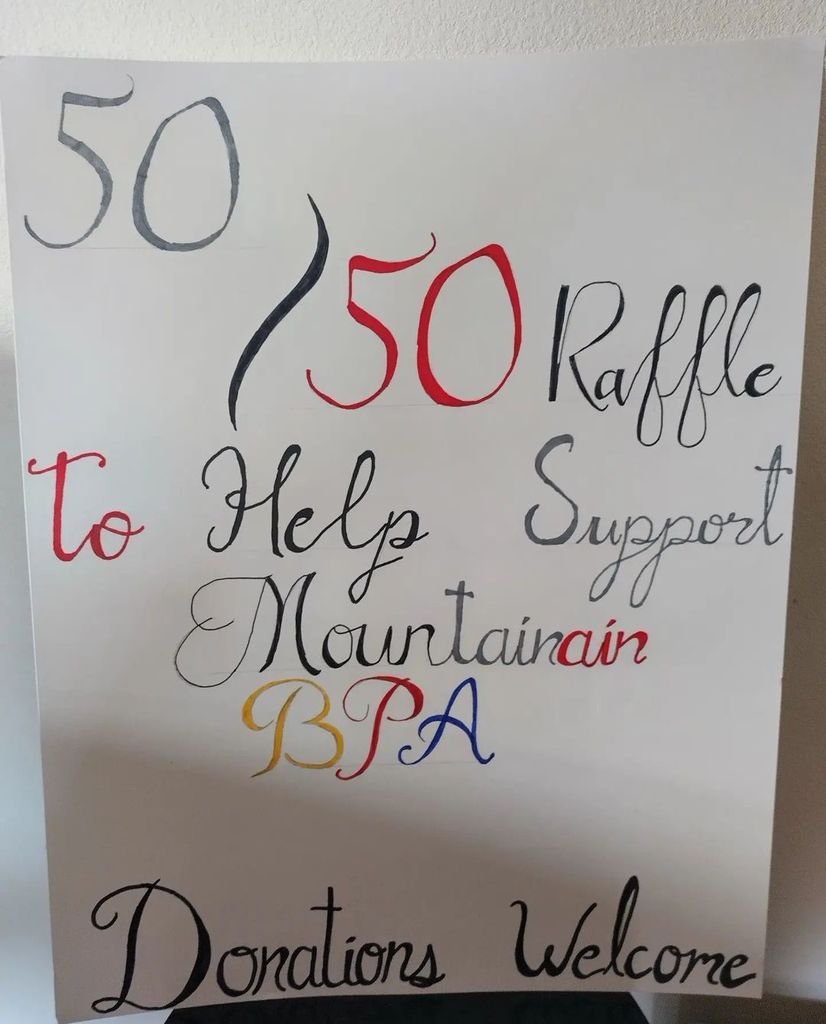 50
/50 Raffle
to Help Support
Mountainain
BPA
Donations Welcome